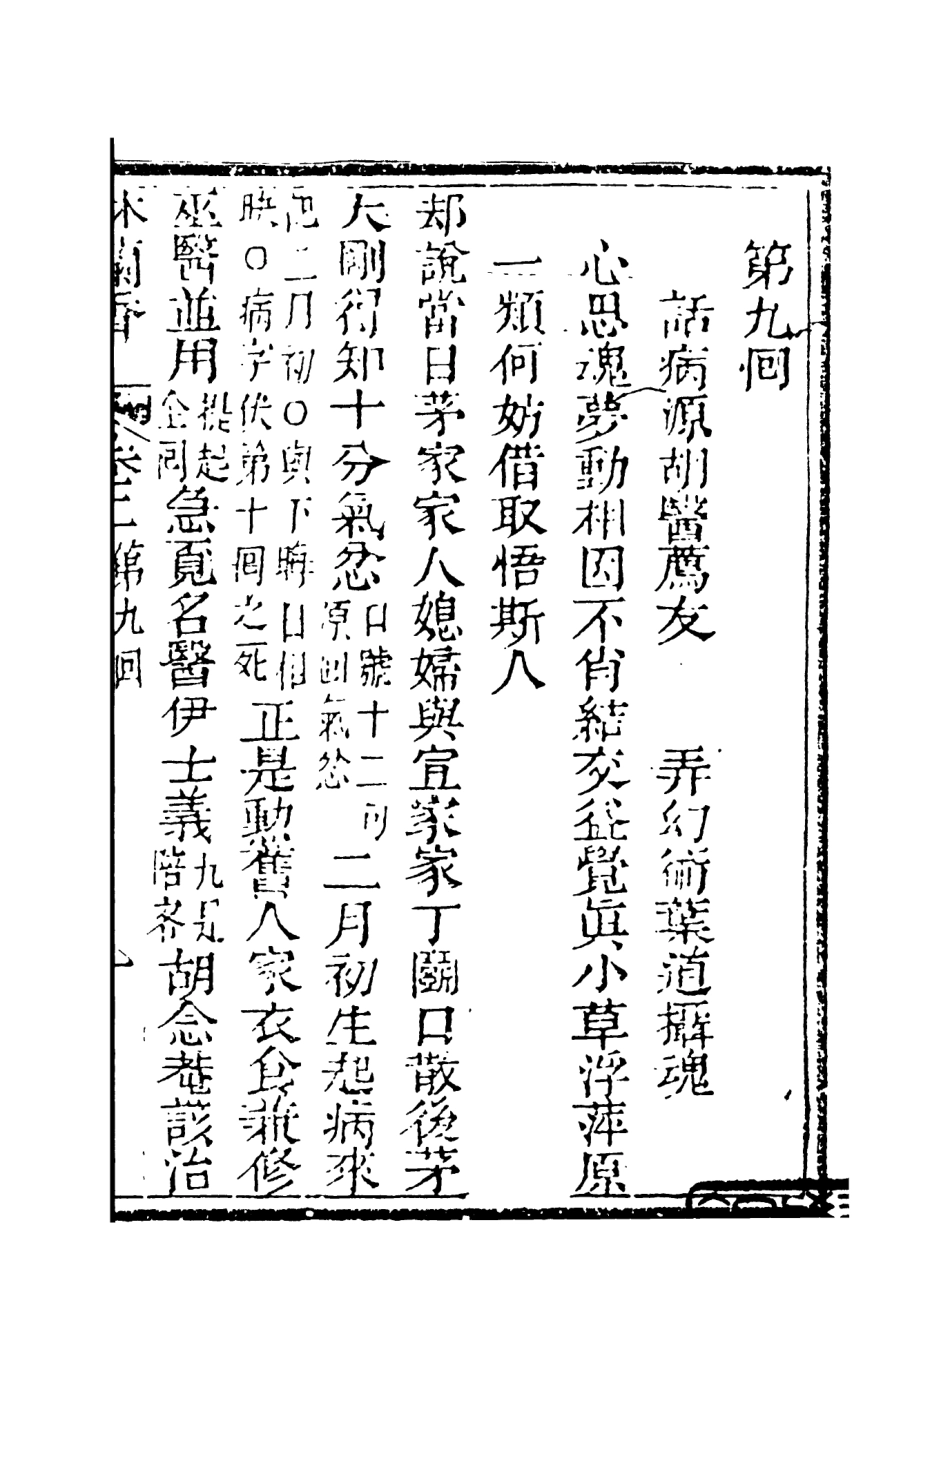 第九回
話病源胡醫薦友　弄幻術葉道攝魂
心思魂夢動相因不肖結交益覺眞小草浮萍原
一類何妨借取悟斯人
却說當日茅家家人媳婦與宜家家丁鬭口散後茅
大剛得知十分氣忿口號十二句原因氣忿二月初生起病來
二月初〇與下晦日相映〇病字伏第十回之死正是勳舊人家衣食兼修
巫醫並用提起全回急覓名醫伊士義陪客胡念菴診治
木蘭香　卷二第九回